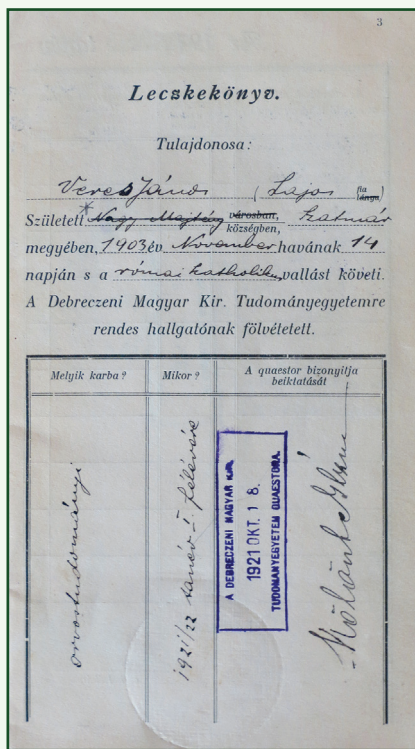 3
Leczkekönyv.
Tulajdonosa:
Veres János (Lajos fia
ánya)
Született Nagy Majtény városban,
községben, Szatmár
megyében, 1903 év November havának 14
napján s a római katholikus vallást követi.
A Debreczeni Magyar Kir. Tudományegyetemre
rendes hallgatónak fölvétetett.
Melyik karba? Mikor? A quaestor bizonyitja
beiktatását
orvostudományi
1921/22 tanév I. félévére
A DEBRECZENI MAGYAR KIR.
1921 OKT. 18.
TUDOMÁNYEGYETEM QUAESTORA.